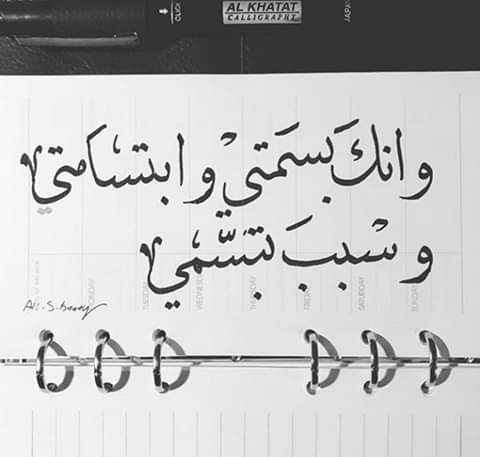 CLICK
AL KHATAT
CALLIGRAPHY
JAPAN
وانكَ بسَمتيْ وابتسامتي
وسْببَ تبسّمي
MONDAY
TUESDAY
WEDNESDAY
THURSDAY
FRIDAY
SATURDAY
SUNDAY